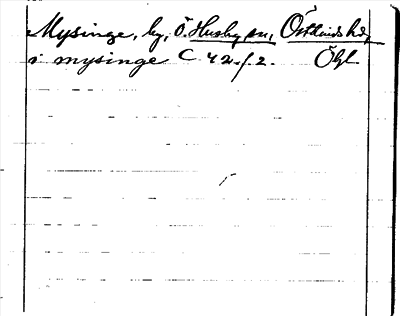 Mysinge, by, Ö. Husby sn, Östkinds hd,
i mysinge C 42 f. 2. Ögl.